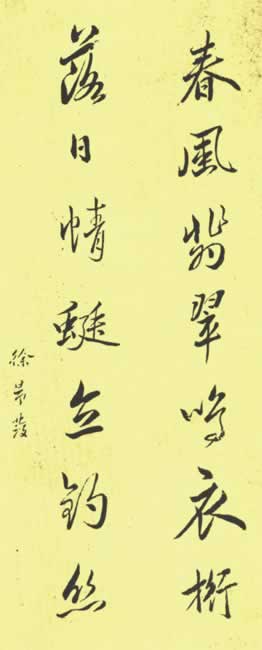 春風翡翠鳴衣桁
落日蜻蜓立釣絲
徐昂發